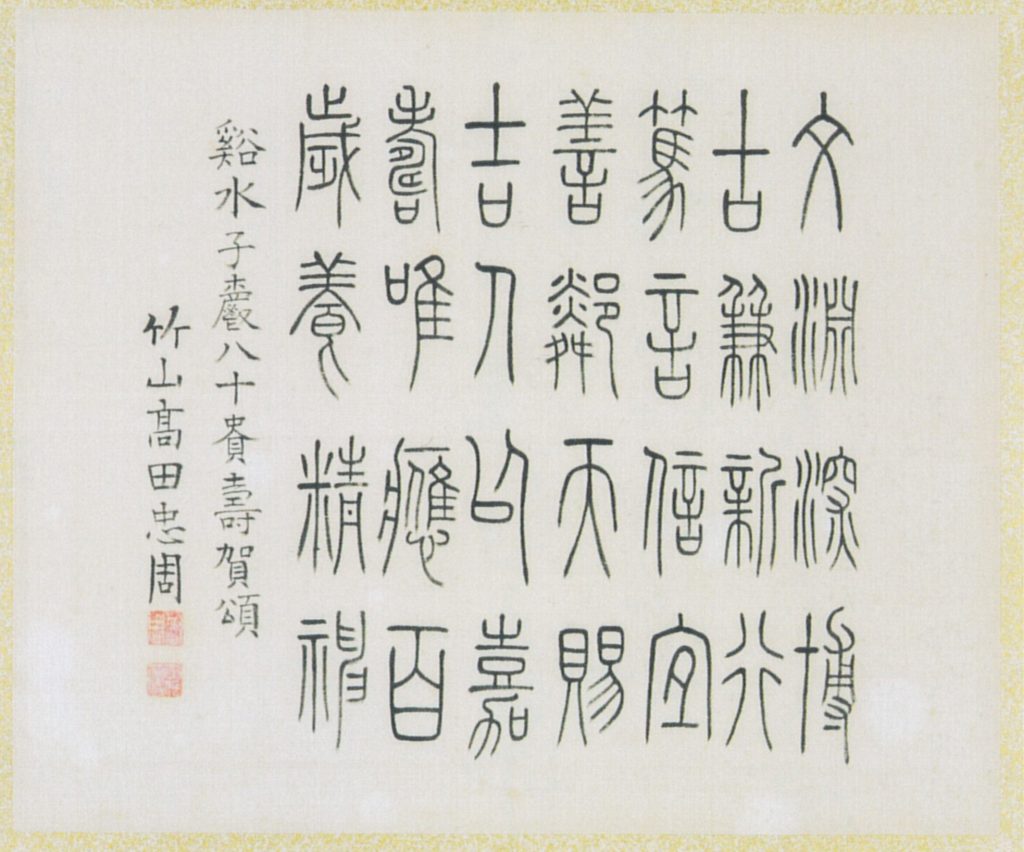 文淵深博
古兼新行
篤言信宜
善鄰天賜
吉人以嘉
壽唯應百
歲養精神
谿水子爵八十貴壽賀頌
竹山髙田忠周